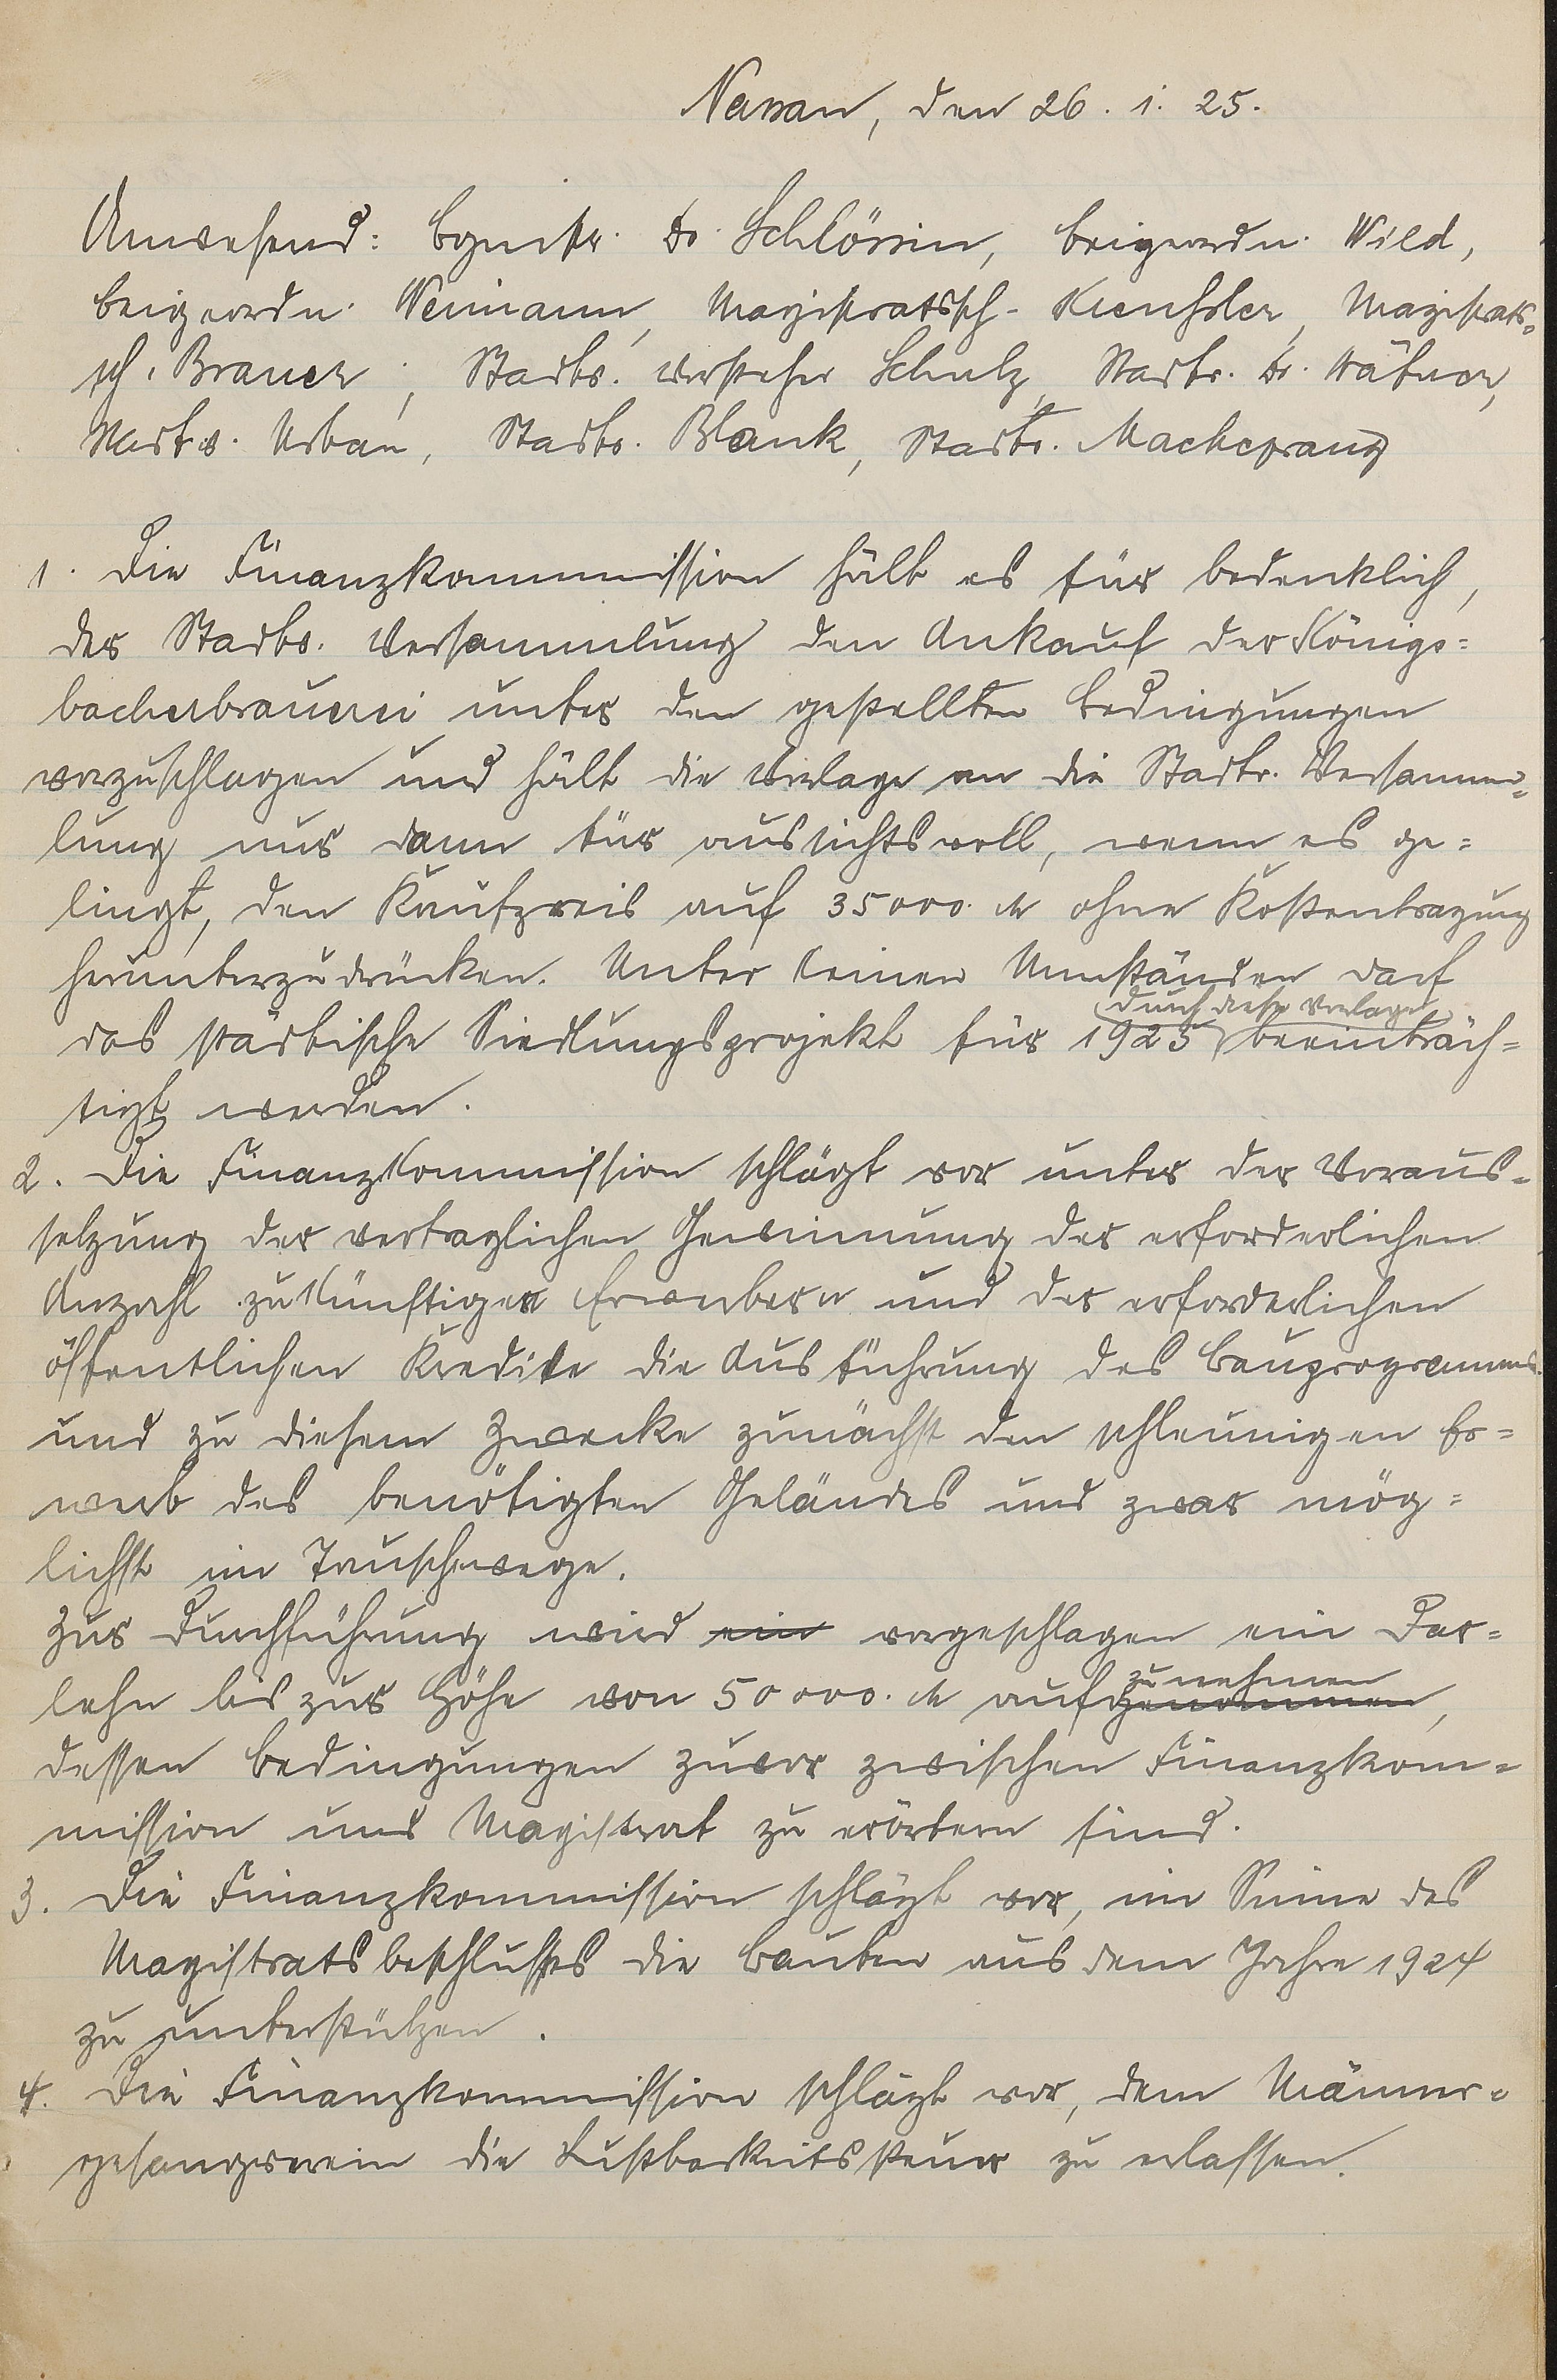 Nassau, den 26. 1. 25.
Anwesend: Bgmstr. Dr. Schlössin, Beigeordn. Wild,
Beigeordn. Weimann, Magistratssch. Kienhsler, Magistrats-
sch. Brauer, Stadtv. Vorsteher Schulz, Stadtv. Dr.
Stadtv. Urban, Stadtv. Blank, Stadtv. Macheprang
1. Die Finanzkommission hält es für bedenklich,
der Stadtv. Versammlung den Ankauf der Königs=
bacherbrauerei unter den gestellten Bedingungen
vorzuschlagen und hält die Vorlage an die Stadtv. Versamm=
lung nur dann für aussichtsvoll, wenn es ge=
lingt, den Kaufpreis auf 35000. M ohne Kostentragung
herunterzudrücken. Unter keinen Umständen darf
durch diese Vorlage
das städtische Siedlungsprojekt für 1925 beeinträch=
tigt werden.
2. Die Finanzkommission schlägt vor unter der Voraus=
setzung der vertraglichen Gewinnung der erforderlichen
Anzahl zukünftiger Erwerber und der erforderlichen
öffentlichen Kredite die Ausführung des Bauprogramms
und zu diesem Zwecke zunächst den schleunigen Er=
werb des benötigten Geländes und zwar mög=
lichst im Tauschwege.
Zur Durchführung wird ein vorgeschlagen ein Dar=
zunehmen
lehn bis zur Höhe von 50000. M aufgenommen,
dessen Bedingungen zuvor zwischen Finanzkom=
mission und Magistrat zu erörtern sind.
3. Die Finanzkommission schlägt vor, im Sinne des
Magistratsbeschlusses die Bauten aus dem Jahre 1924
zu unterstützen.
4. Die Finanzkommission schlägt vor, dem Männer=
gesangverein die Lustbarkeitssteuer zu erlassen.